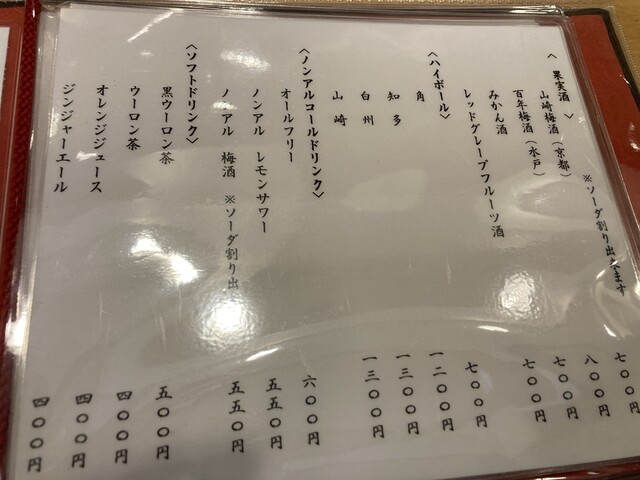 〈果実酒〉 ※ソーダ割り出来ます
山崎梅酒(京都) 七〇〇円
百年梅酒(水戸) 八〇〇円
みかん酒 七〇〇円
レッドグレープフルーツ酒 七〇〇円
〈ハイボール〉
角 七〇〇円
知多 一二〇〇円
白州 一三〇〇円
山崎 一三〇〇円
〈ノンアルコールドリンク〉
オールフリー 六〇〇円
ノンアル レモンサワー 五五〇円
ノンアル 梅酒 ※ソーダ割り出 五五〇円
〈ソフトドリンク〉
黒ウーロン茶 五〇〇円
ウーロン茶 四〇〇円
オレンジジュース 四〇〇円
ジンジャーエール 四〇〇円